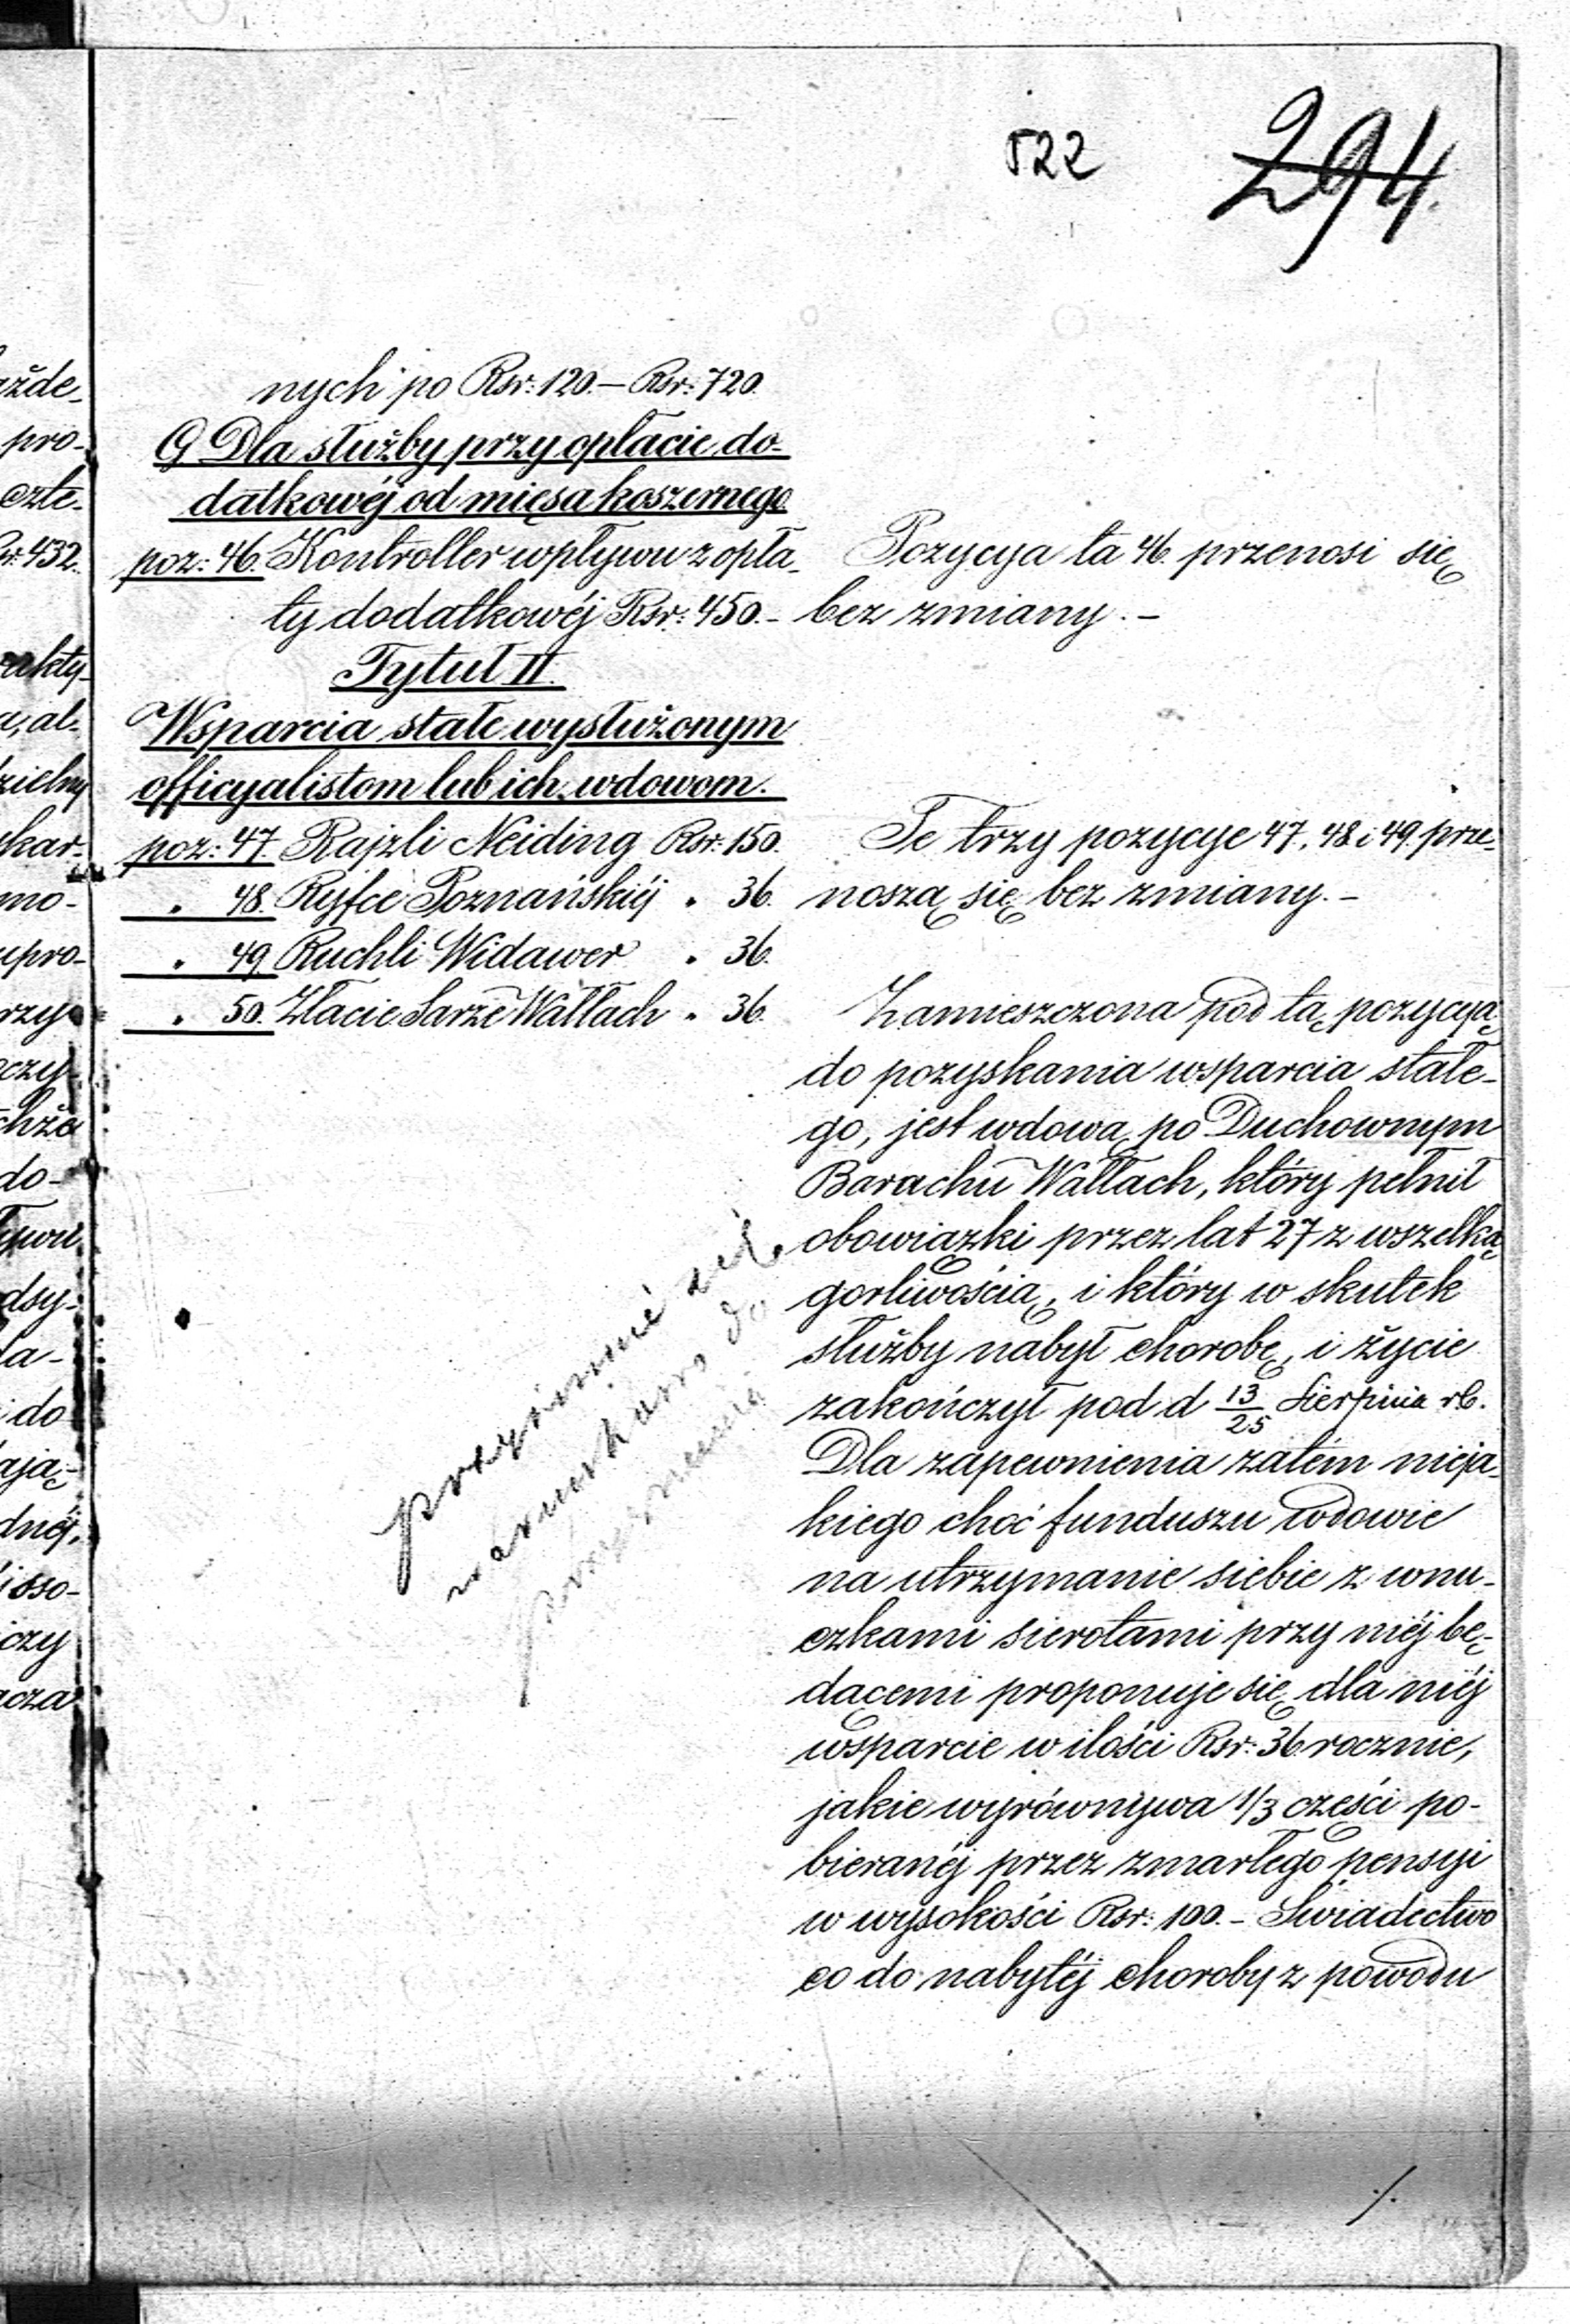 522
294.
nych po Rsr: 120.— Rsr: 720.
G Dla służby przy opłacie do-
datkowéj od mięsa koszernego
poz: 46. Kontroller wpływu z opła-
ty dodatkowéj Rsr: 450.-
Tytuł II.
Wsparcia stałe wysłużonym
officyalistom lub ich wdowom.
poz: 47. Rajzli Neiding Rsr: 150.
" 48. Ryfce Poznańskiéj " 36.
" 49 Ruchli Widawer " 36.
" 50. Złacie Sarze Wallach " 36.
Pozycya ta 46. przenosi się
bez zmiany.-
Te trzy pozycye 47, 48 i 49. prze-
noszą się bez zmiany.-
Zamieszczona pod tą pozycyą
do pozyskania wsparcia stałe-
go, jest wdową po Duchownym
Barachu Wallach, który pełnił
obowiązki przez lat 27 z wszelką
gorliwością, i który w skutek
służby nabył chorobę, i życie
zakończył pod d 13/25 Sierpnia rb.
Dla zapewnienia zatém nieja-
kiego choć funduszu wdowie
na utrzymanie siebie z wnu-
czkami sierotami przy niéj bę-
dącemi proponuje się dla niéj
wsparcie w ilości Rsr: 36 rocznie,
jakie wyrównywa 1/3 części po-
bieranéj przez zmarłego pensyi
w wysokości Rsr: 100.- Świadectwo
co do nabytéj choroby z powodu
./.
do
każde-
pro-
czte-
Rsr: 432.
al-
mo-
do-
do
czy